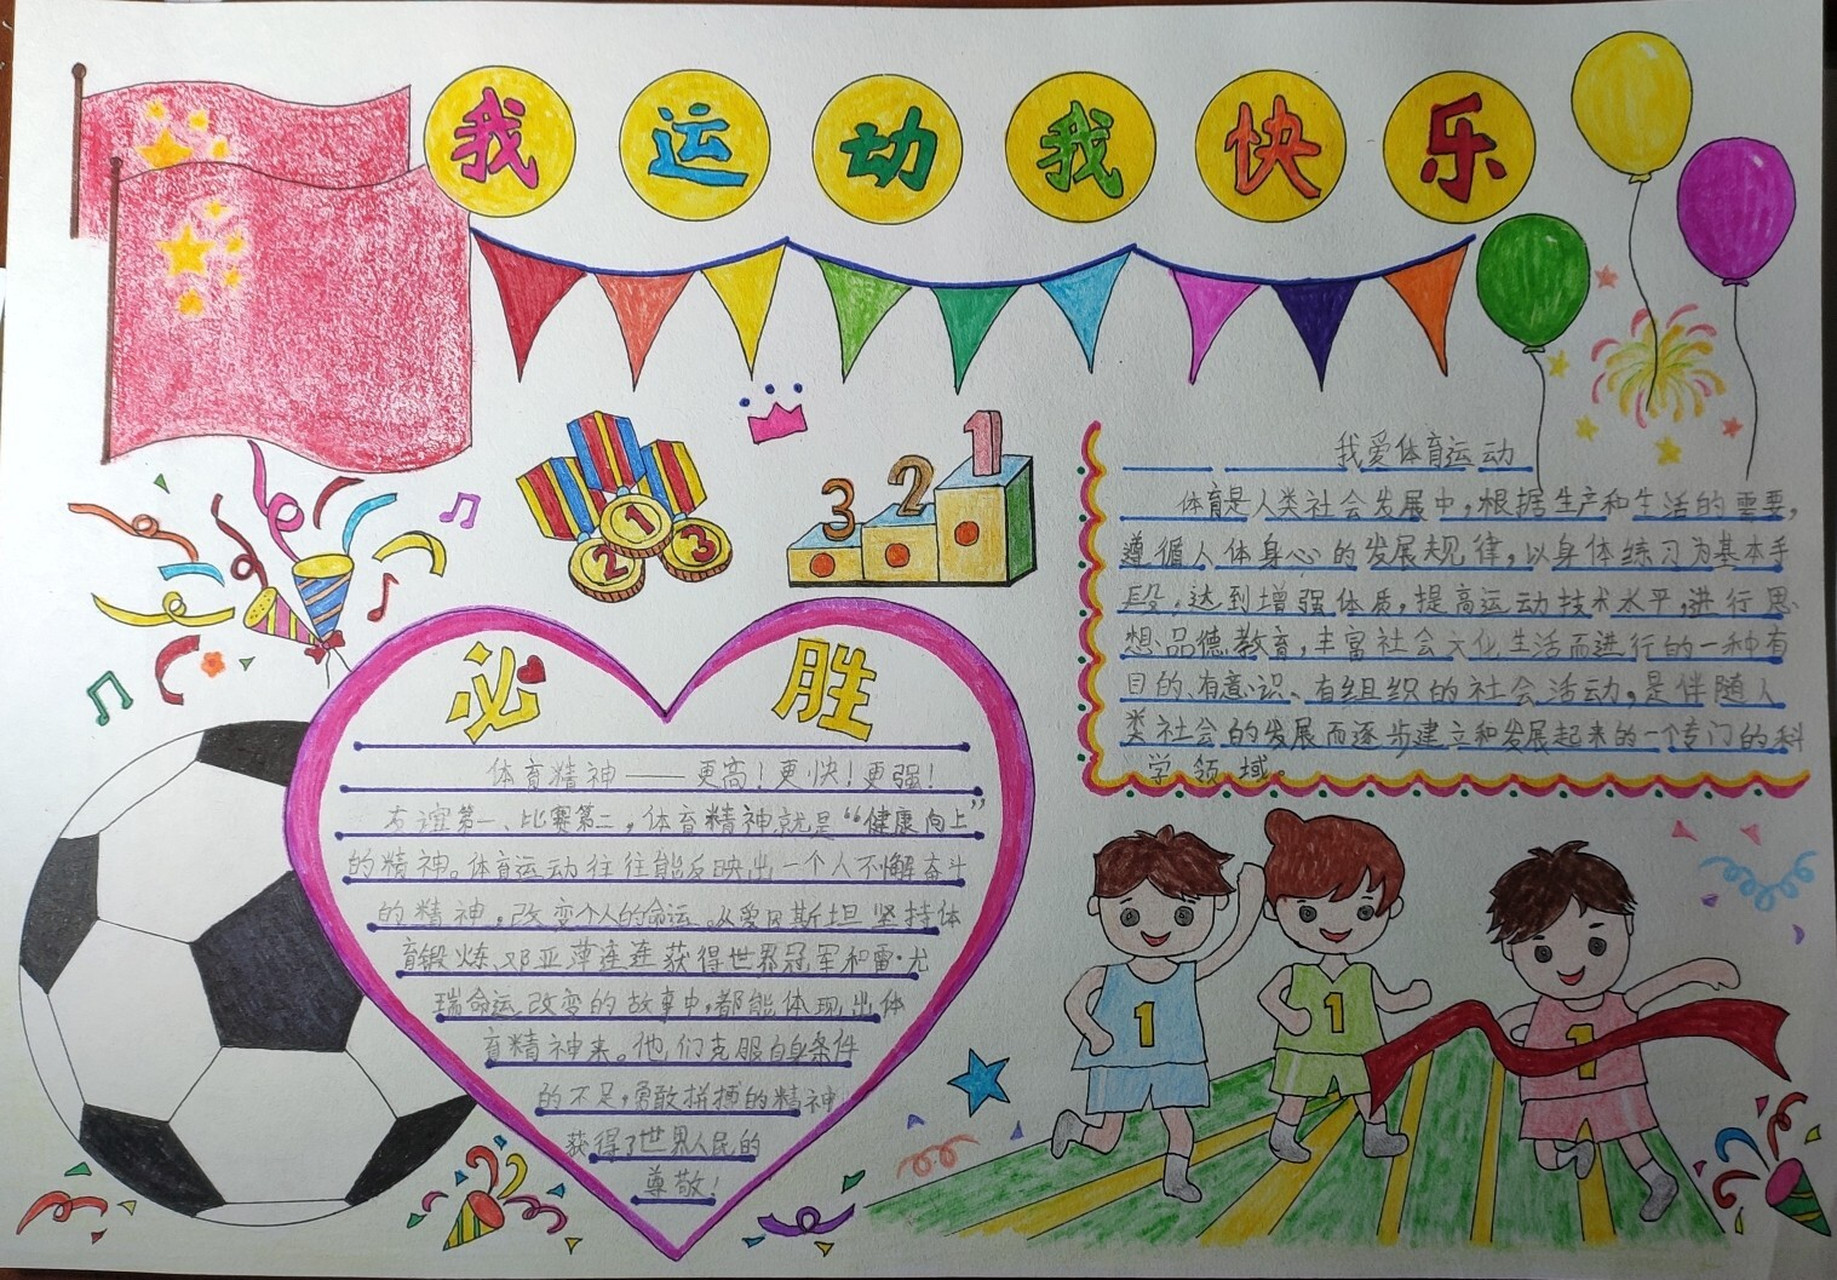 我运动我快乐
1
2
3
3
2
1
我爱体育运动
体育是人类社会发展中,根据生产和生活的需要,
遵循人体身心的发展规律,以身体练习为基本手
段,达到增强体质,提高运动技术水平,进行思
想品德教育,丰富社会文化生活而进行的一种有
目的、有意识、有组织的社会活动,是伴随人
类社会的发展而逐步建立和发展起来的一个专门的科
学领域。
必胜
体育精神——更高!更快!更强!
友谊第一、比赛第二,体育精神就是“健康向上”
的精神。体育运动往往能反映出一个人不懈奋斗
的精神,改变个人的命运。从爱因斯坦坚持体
育锻炼、邓亚萍连连获得世界冠军和雷·尤
瑞命运改变的故事中,都能体现出体
育精神来。他们克服自身条件
的不足,勇敢拼搏的精神
获得了世界人民的
尊敬!
1
1
1